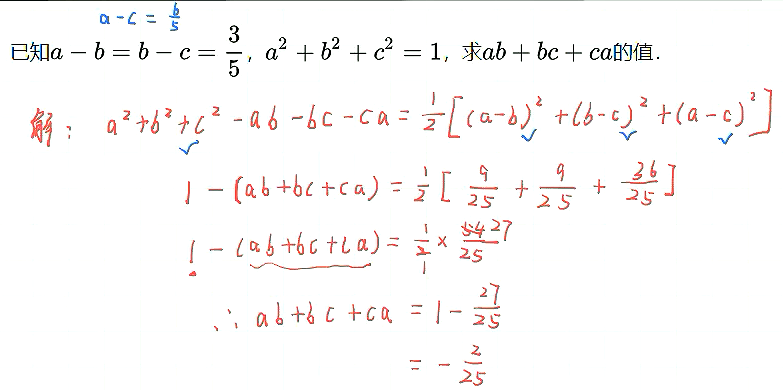 a-c=6/5
已知a-b=b-c=3/5，a²+b²+c²=1，求ab+bc+ca的值．
解：a²+b²+c²-ab-bc-ca=1/2[(a-b)²+(b-c)²+(a-c)²]
1-(ab+bc+ca)=1/2[9/25+9/25+36/25]
1-(ab+bc+ca)=1/2×54/25 27 1
∴ab+bc+ca=1-27/25
=-2/25